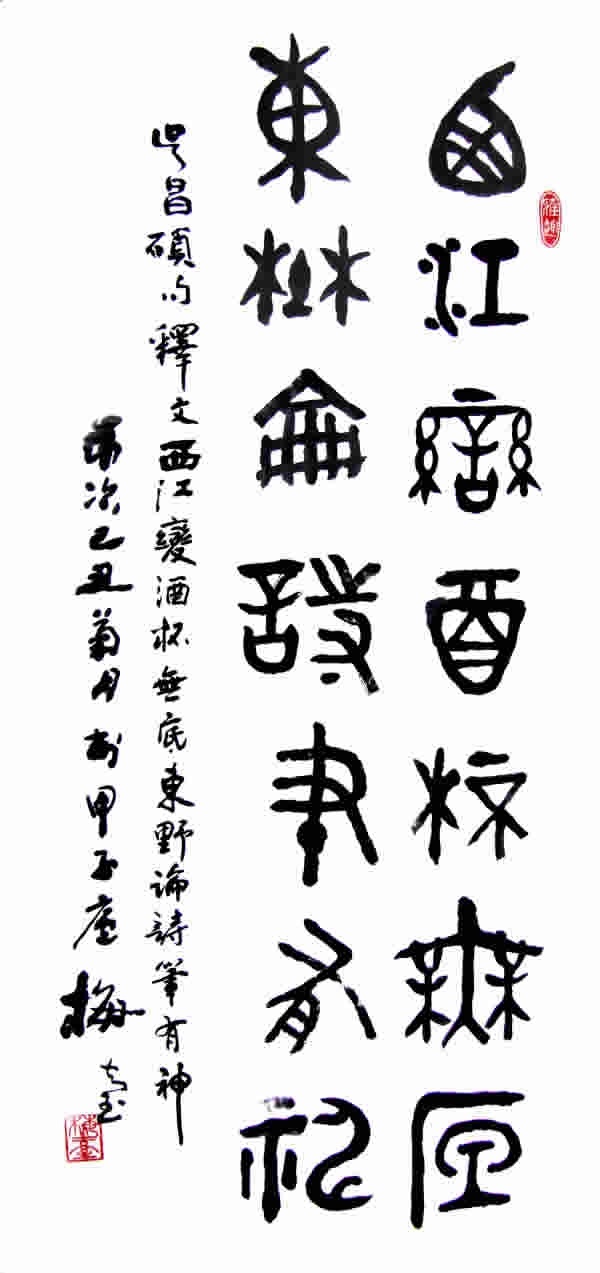 西江䜌酉杯無底
東埜侖詩聿有神
吳昌碩句釋文西江變酒杯無底東野論詩筆有神
歲次己丑菊月於甲子廬梅